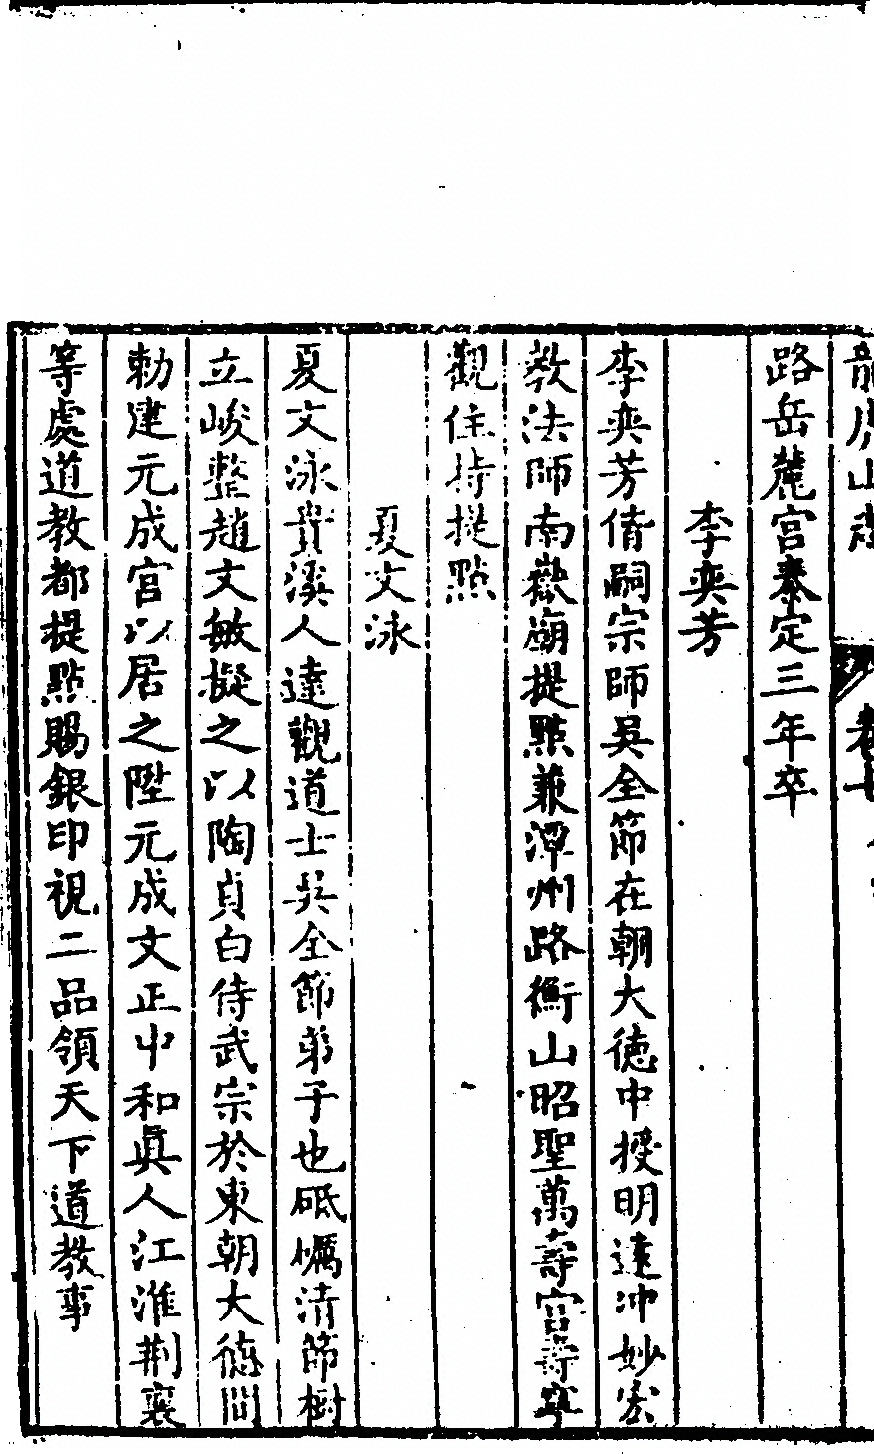 龍虎山志 卷七
路岳麓宮泰定三年卒
李奕芳
李奕芳偕嗣宗師吳全節在朝大德中授明遠冲妙宏
教法師南嶽廟提點兼潭州路衡山昭聖萬壽宮壽寧
觀住持提點
夏文泳
夏文泳貴溪人達觀道士吳全節弟子也砥礪清節樹
立峻整趙文敏擬之以陶貞白侍武宗於東朝大德間
勅建元成宮以居之陞元成文正中和眞人江淮荆襄
等處道教都提點賜銀印視二品領天下道教事